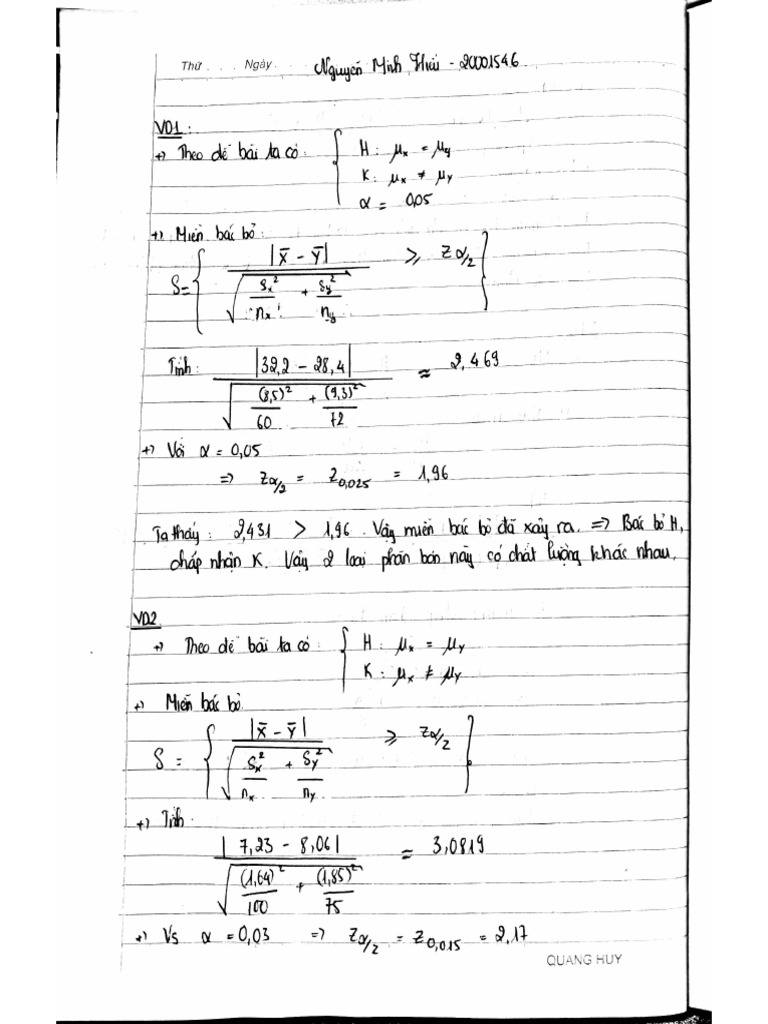 Thứ . . . . Ngày . . . . . Nguyễn Minh Hiếu - 20001546
VD1 :
+) Theo đề bài ta có : { H : μx = μy
K : μx ≠ μy
α = 0,05
+) Miền bác bỏ :
S = { |X̄ - Ȳ| / √(Sx²/nx + Sy²/ny) ⩾ Zα/2 }
Tính : |32,2 - 28,4| / √((8,5)²/60 + (9,3)²/72) ≈ 2,469
+) Với α = 0,05
=> Zα/2 = Z0,025 = 1,96
Ta thấy : 2,431 > 1,96 . Vậy miền bác bỏ đã xảy ra. => Bác bỏ H,
chấp nhận K. Vậy 2 loại phân bón này có chất lượng khác nhau.
VD2
+) Theo đề bài ta có : { H : μx = μy
K : μx ≠ μy
+) Miền bác bỏ
S = { |X̄ - Ȳ| / √(Sx²/nx + Sy²/ny) ⩾ Zα/2 }
+) Tính
| 7,23 - 8,06| / √((1,64)²/100 + (1,85)²/75) ≈ 3,0819
+) Vs α = 0,03 => Zα/2 = Z0,015 = 2,17
QUANG HUY